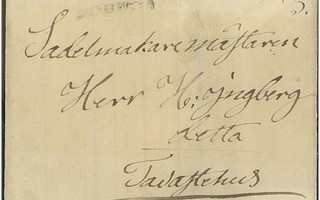 Sadelmakaremästaren
Herr H. Öjngberg
detta
Tavastehus